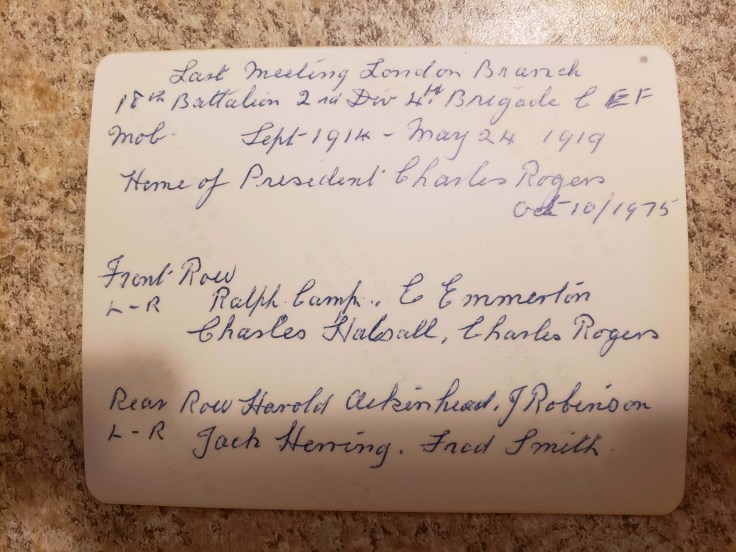 Last Meeting London Branch
18th Battalion 2nd Div 4th Brigade C E F
Mob. Sept 1914 - May 24 1919
Home of President Charles Rogers
Oct 10/1975
Front Row
L-R Ralph Camp., C Emmerton
Charles Halsall, Charles Rogers
Rear Row Harold Aikinhead, J Robinson
L-R Jack Herring. Fred Smith